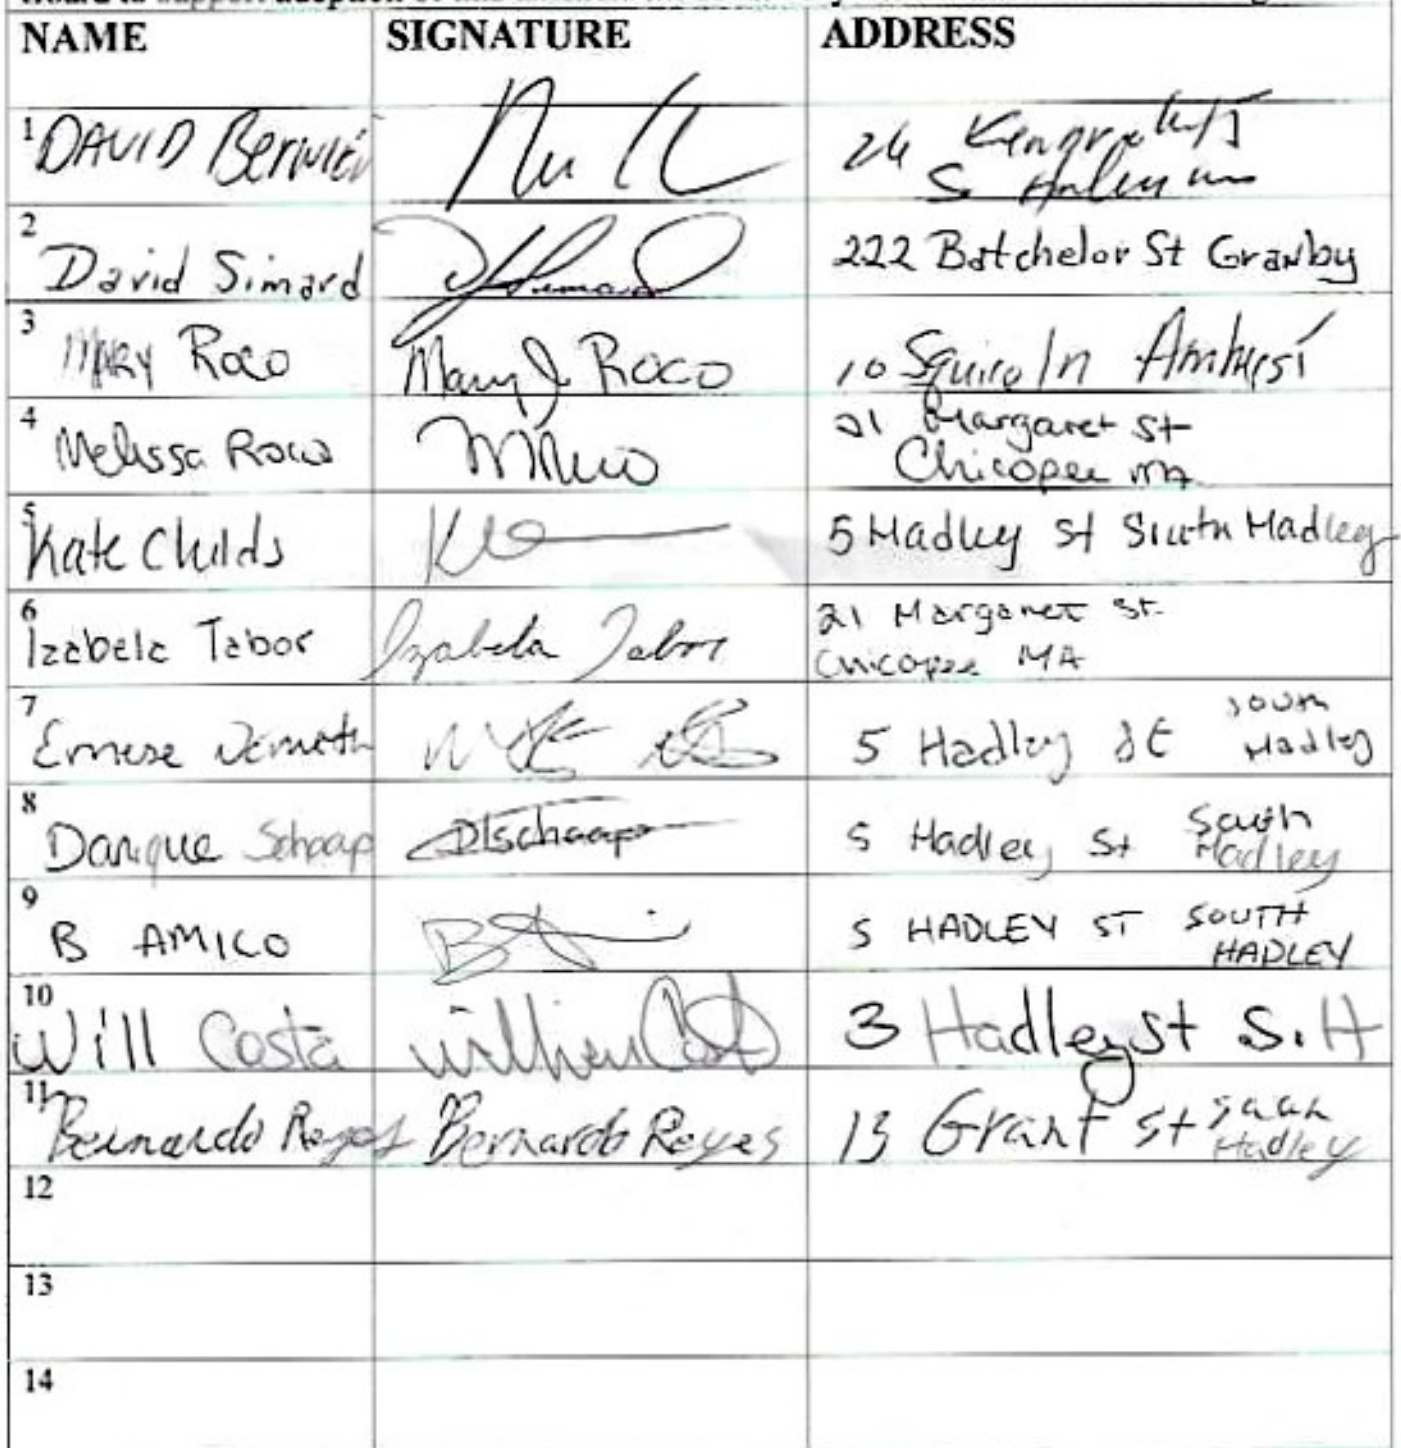 NAME SIGNATURE ADDRESS
1 DAVID
2 David Simard 222 Batchelor St Granby
3 MARY Roco Mary J Roco 10 Squire ln Amherst
4 Melissa Roco 21 Margaret St
Chicopee MA
5 Kate Childs 5 Hadley St South Hadley
6 Izabela Tabor Izabela Tabor 21 Margaret St.
Chicopee MA
7 Emese Nemeth 5 Hadley St South
Hadley
8 Danique Schaap DTSchaap 5 Hadley St South
Hadley
9 B AMICO 5 HADLEY ST SOUTH
HADLEY
10 Will Costa William Costa 3 Hadley St S.H
11 Bernardo Reyes Bernardo Reyes 13 Grant St South
Hadley
12
13
14